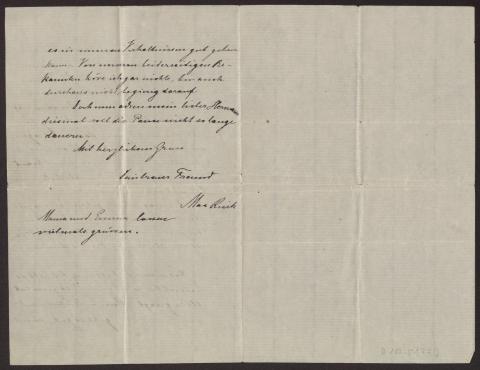 es in unseren Verhältnissen gut gehen
kann. Von unseren beiderseitigen Be-
kannten höre ich gar nichts, bin auch
durchaus nicht begierig darauf.
Doch nun adieu mein lieber Herman
diesmal soll die Pause nicht so lange
dauern.
Mit herzlichem Gruss
Dein treuer Freund
Max
Mama und Emma lassen
vielmals grüssen.